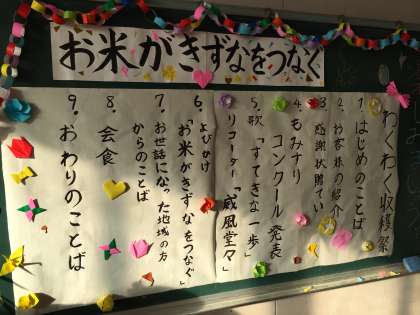 お米がきずなをつなぐ
わくわく収穫祭
1. はじめのことば
2. お客様の紹介
3. 感謝状贈てい
4. もみすり
コンクール発表
5. 歌「すてきな一歩」
リコーダー「威風堂々」
6. よびかけ
「お米がきずなをつなぐ」
7. お世話になった地域の方
からのことば
8. 会食
9. おわりのことば